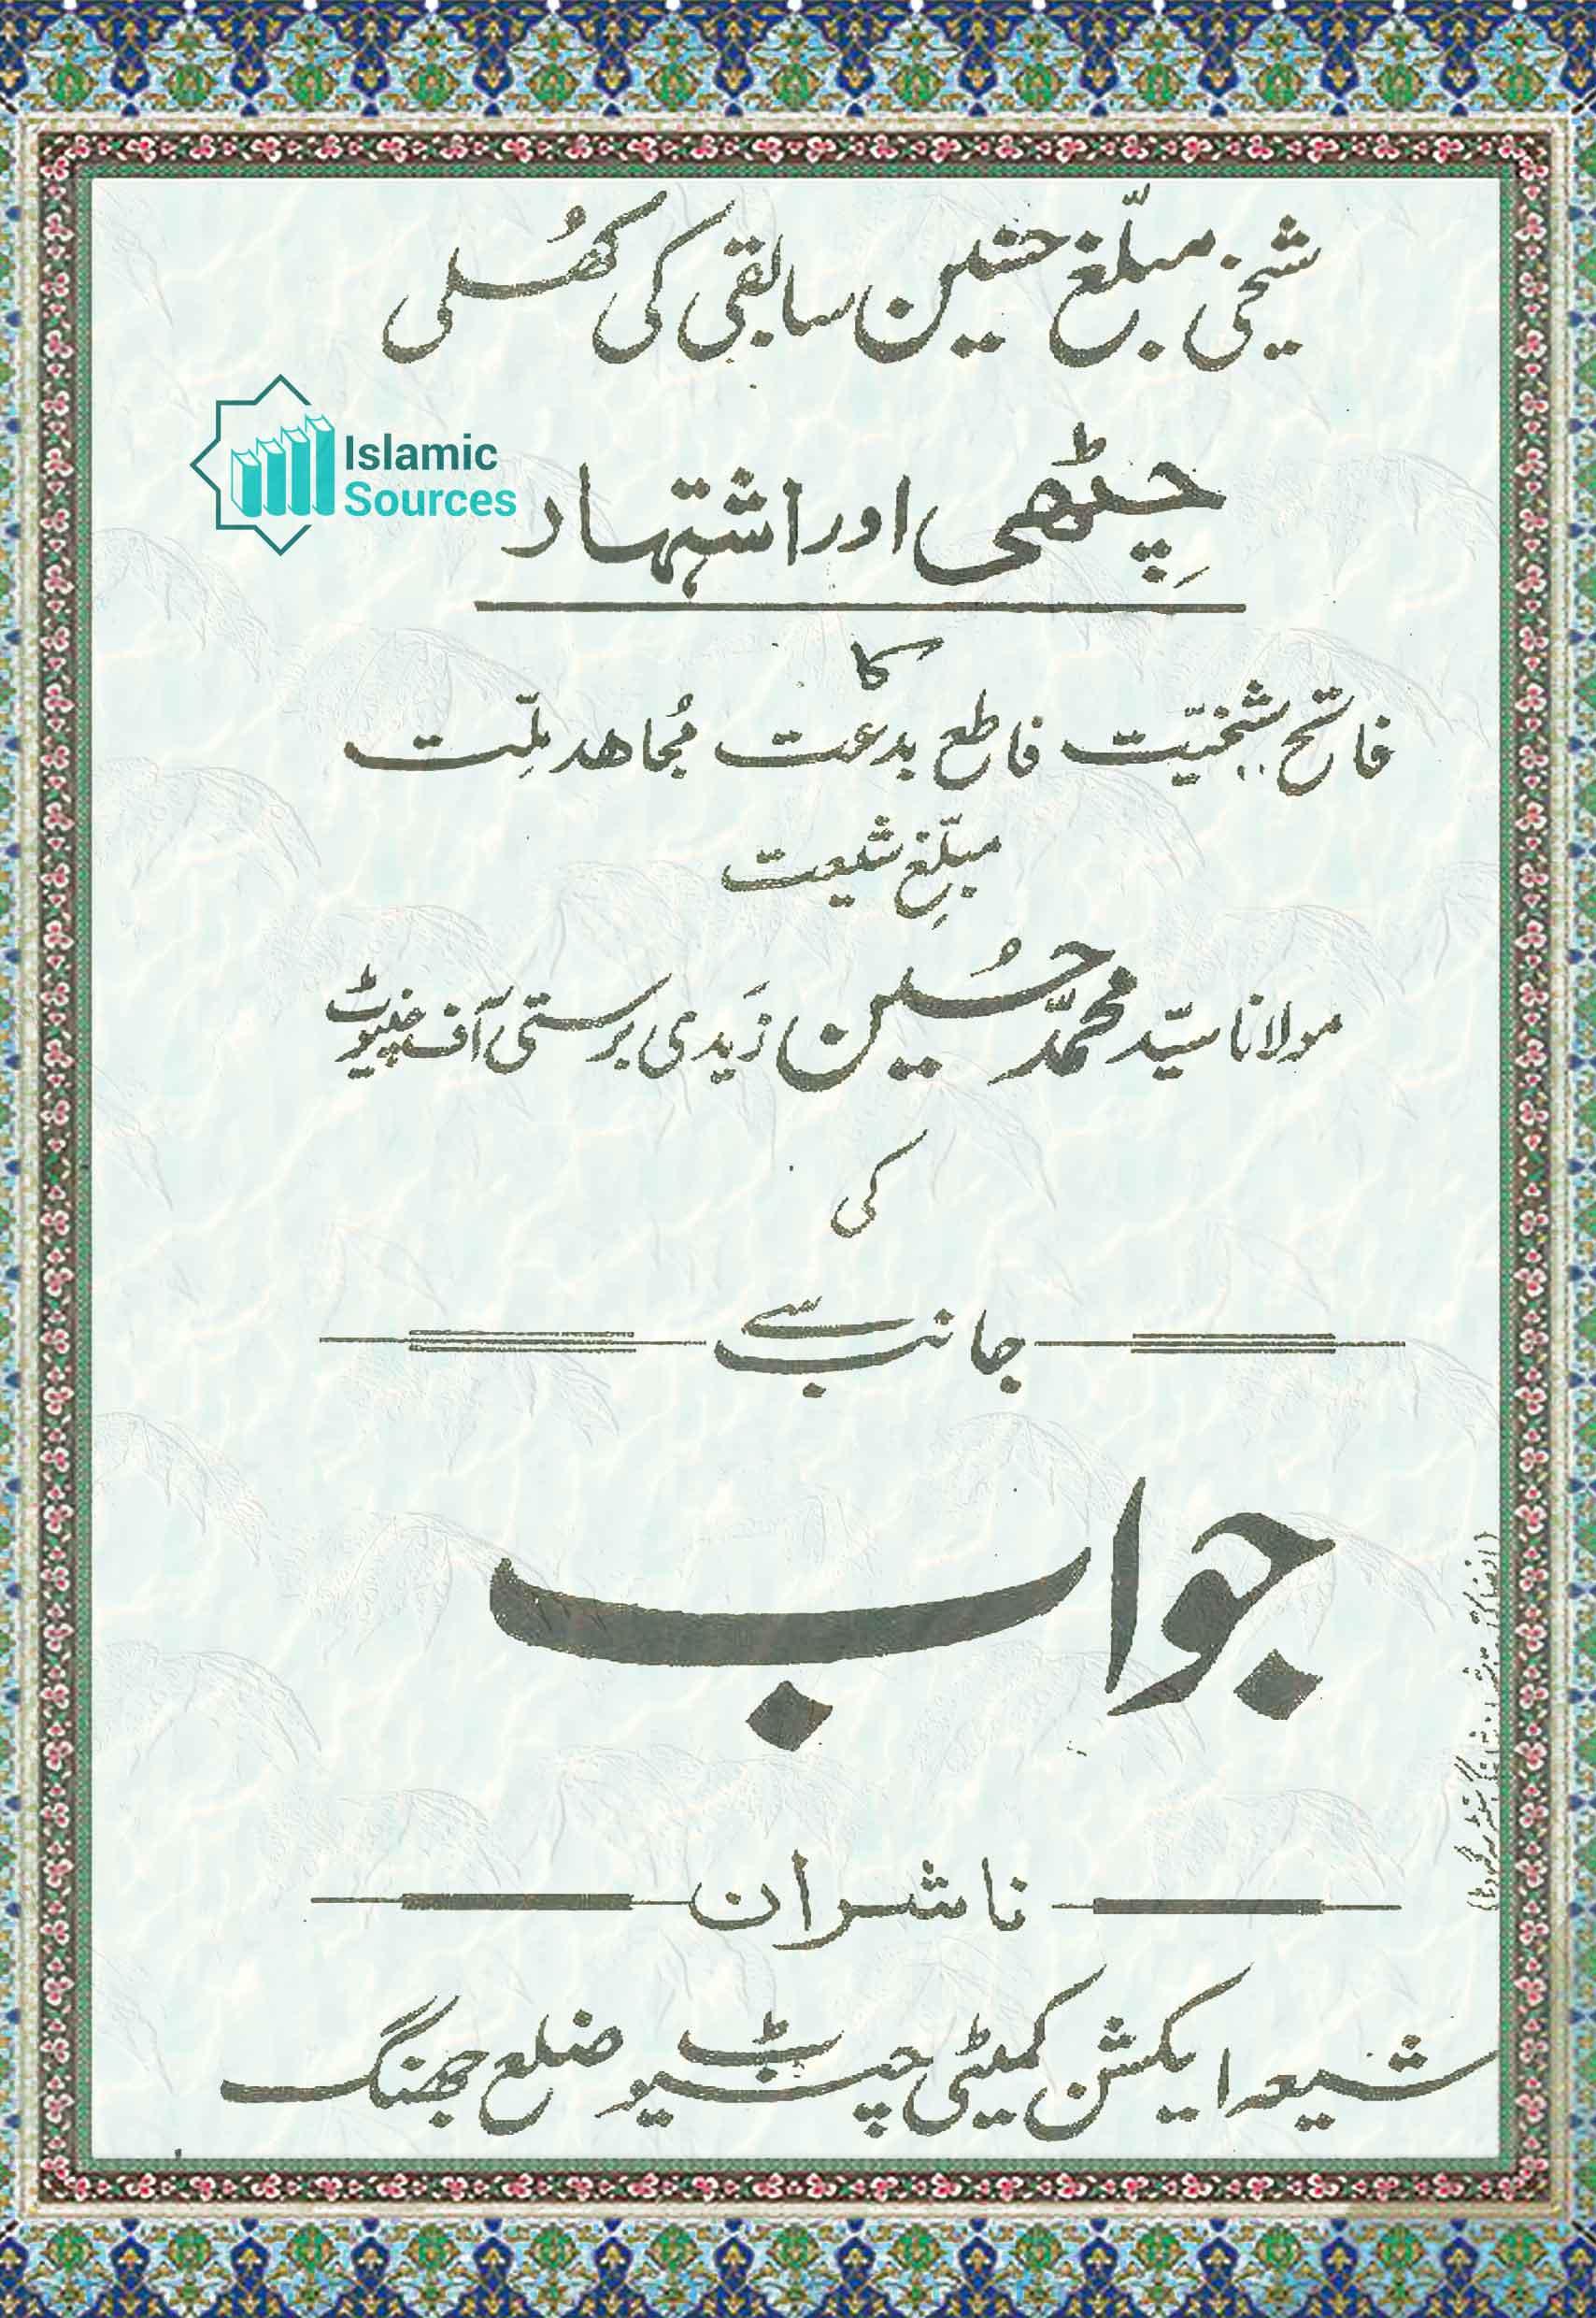 شیخی مبلّغ حسین سابقی کی کھُلی
Islamic
Sources
چِٹھی اور اشتہار
کا
فاتح شیخیّت قاطع بدعت مُجاھد ملّت
مبلّغِ شیعت
مولانا سیّد محمّد حُسین زَیدی برستی آف چنیوٹ
کی
جانب سے
جواب
ناشران
شیعہ ایکشن کمیٹی چنیوٹ ضلع جھنگ